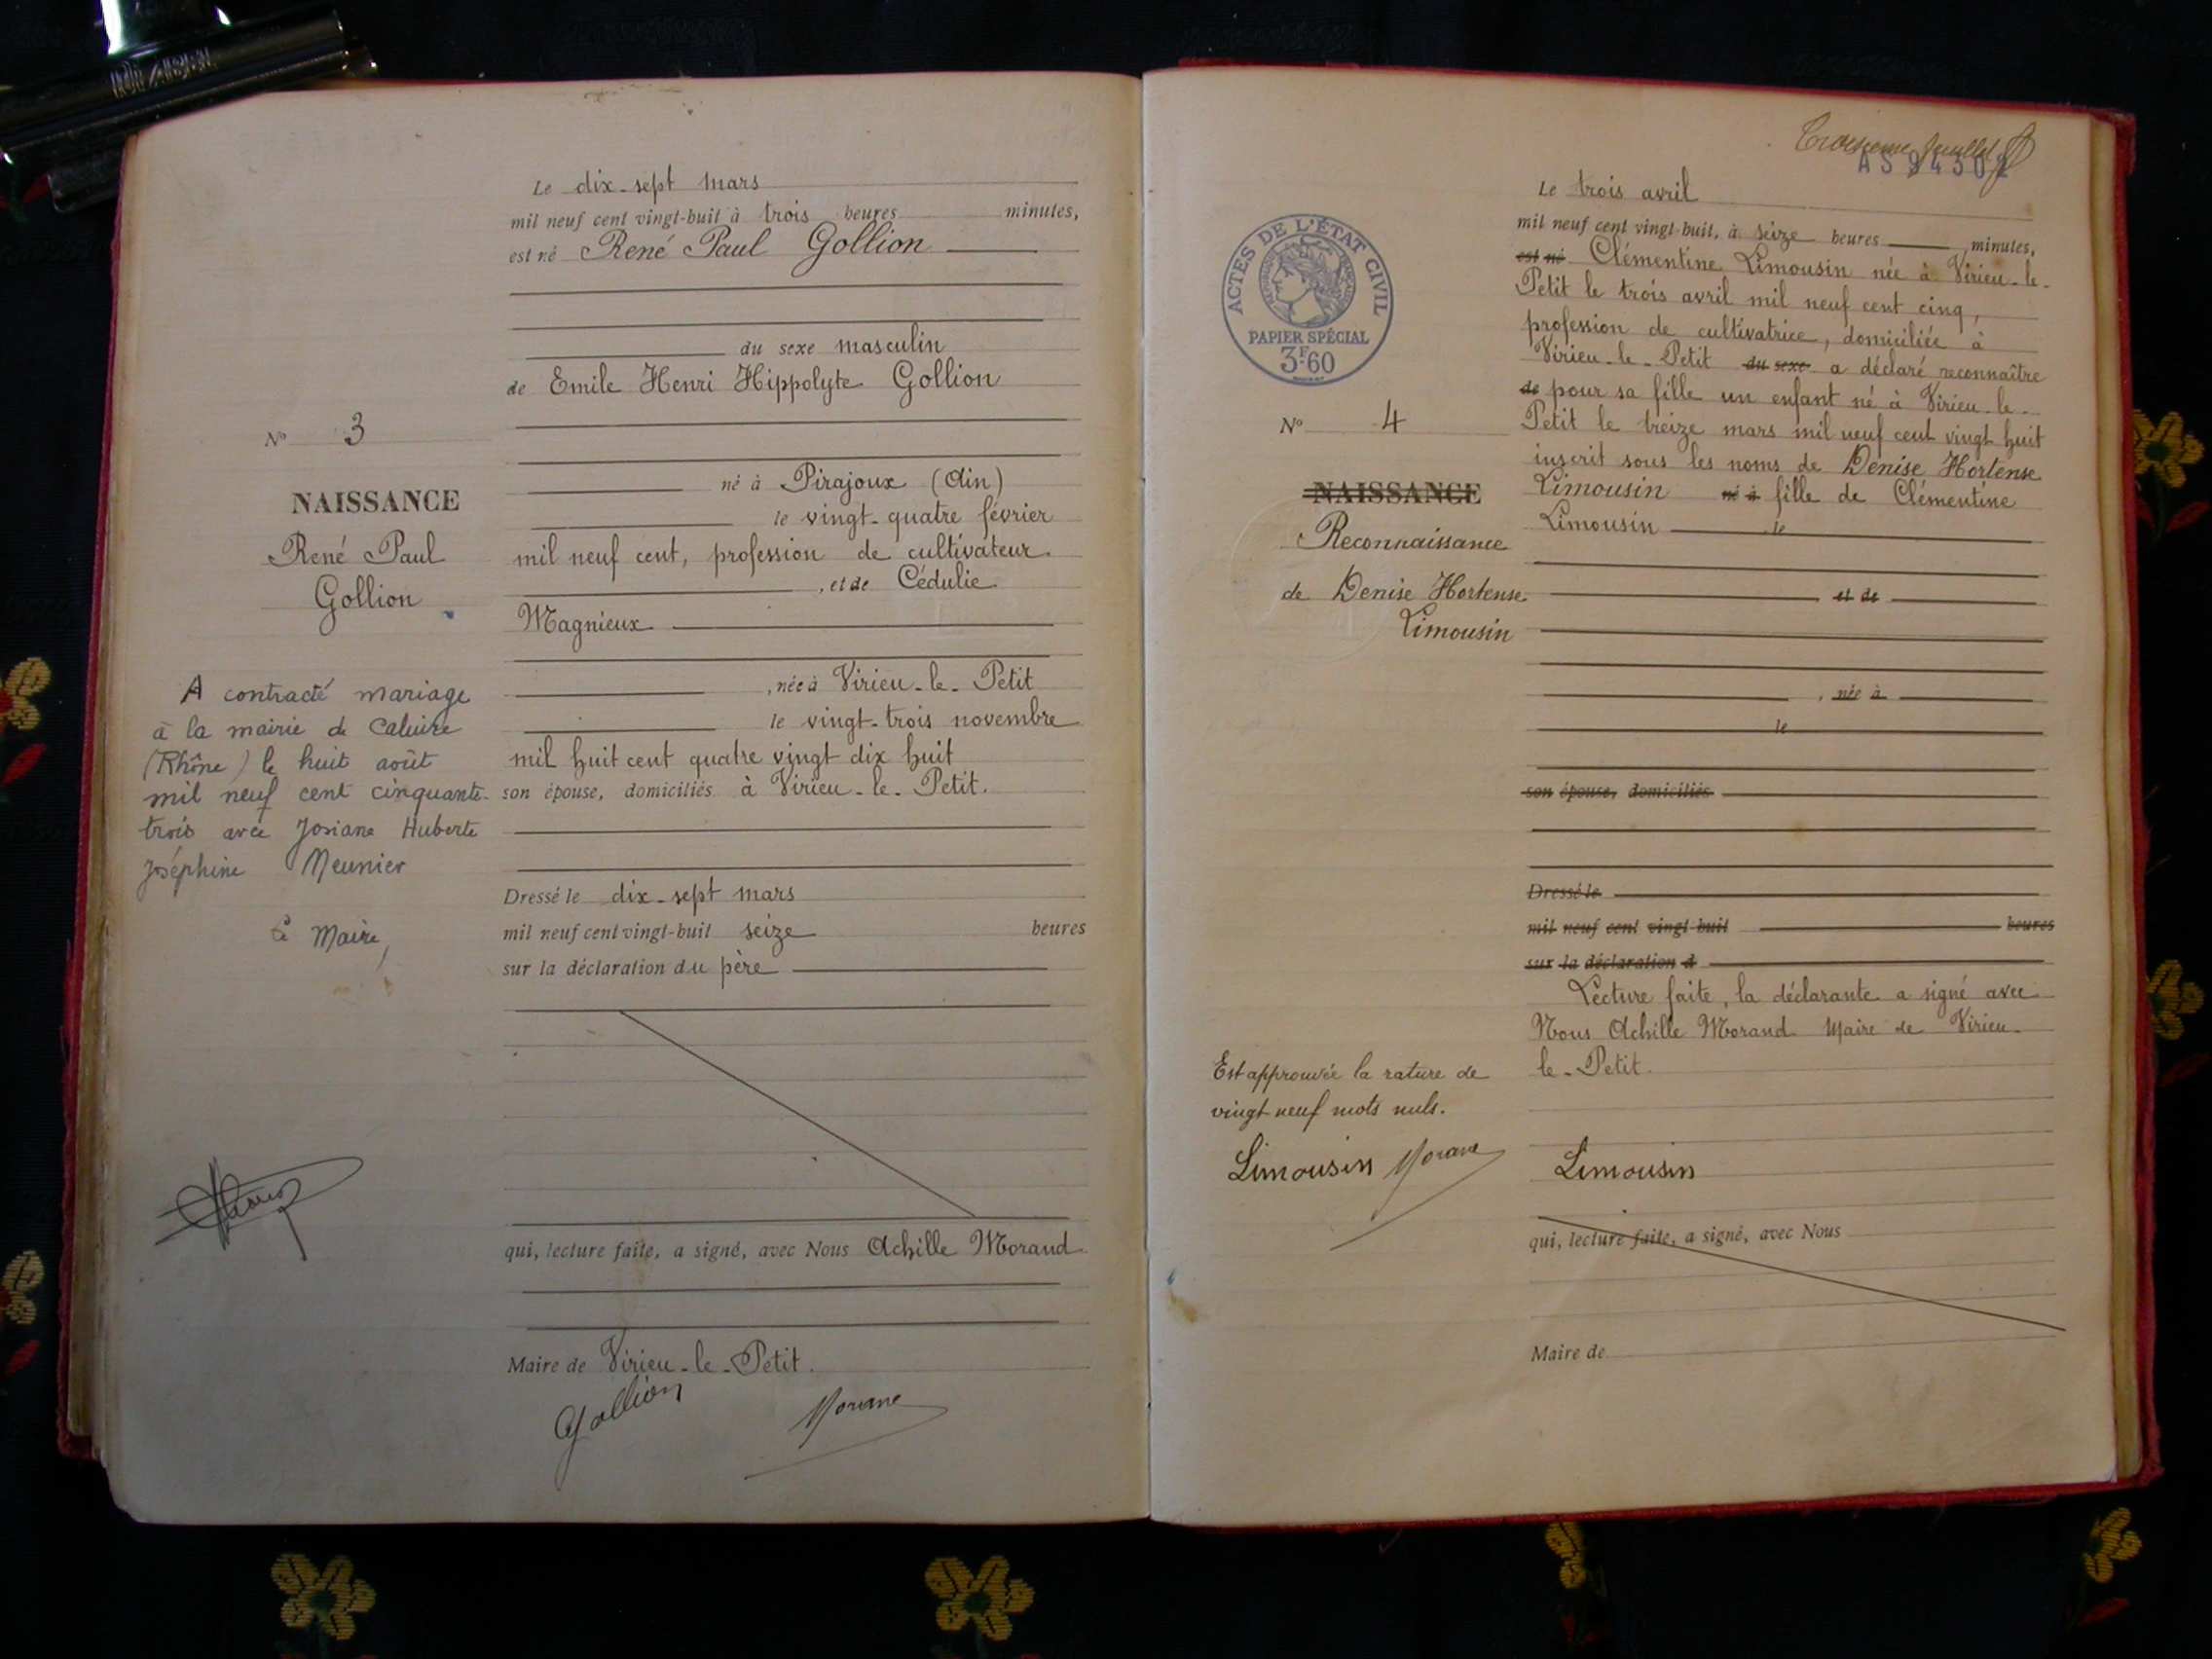 Le dix-sept mars
mil neuf cent vingt-huit à trois heures minutes,
est né René Paul Gollion
du sexe masculin
de Emile Henri Hippolyte Gollion
N° 3
né à Pirajoux (Ain)
NAISSANCE
le vingt-quatre février
René Paul
mil neuf cent, profession de cultivateur
Gollion
, et de Cédulie
Magnieux
A contracté mariage
à la mairie de Caluire
(Rhône) le huit août
mil neuf cent cinquante-
trois avec Josiane Huberte
Joséphine Meunier
Le Maire,
, née à Virieu-le-Petit
le vingt-trois novembre
mil huit cent quatre vingt dix huit
son épouse, domiciliés à Virieu-le-Petit.
Dressé le dix-sept mars
mil neuf cent vingt-huit seize heures
sur la déclaration du père
qui, lecture faite, a signé, avec Nous Achille Morand
Maire de Virieu-le-Petit.
Gollion
Troisième feuillet
ACTES DE L'ÉTAT CIVIL
PAPIER SPÉCIAL
3F60
N° 4
NAISSANCE
Reconnaissance
de Denise Hortense
Limousin
Le trois avril
mil neuf cent vingt-huit, à seize heures minutes,
est né Clémentine Limousin née à Virieu-le-
Petit le trois avril mil neuf cent cinq,
profession de cultivatrice, domiciliée à
Virieu-le-Petit du sexe a déclaré reconnaître
de pour sa fille un enfant né à Virieu-le-
Petit le treize mars mil neuf cent vingt huit
inscrit sous les noms de Denise Hortense
Limousin né à fille de Clémentine
Limousin le
et de
, née à
le
son épouse, domiciliés
Dressé le
mil neuf cent vingt-huit heures
sur la déclaration d
Lecture faite, la déclarante a signé avec
Nous Achille Morand Maire de Virieu-
le-Petit.
Est approuvée la rature de
vingt neuf mots nuls.
Limousin
Limousin
qui, lecture faite, a signé, avec Nous
Maire de